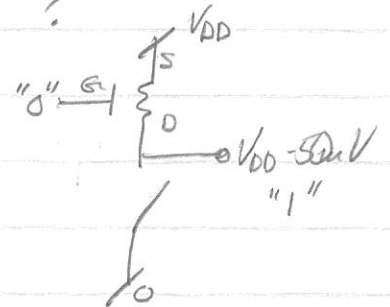 ?
VDD
S
"0" G
D
VDD - 50mV
"1"
0